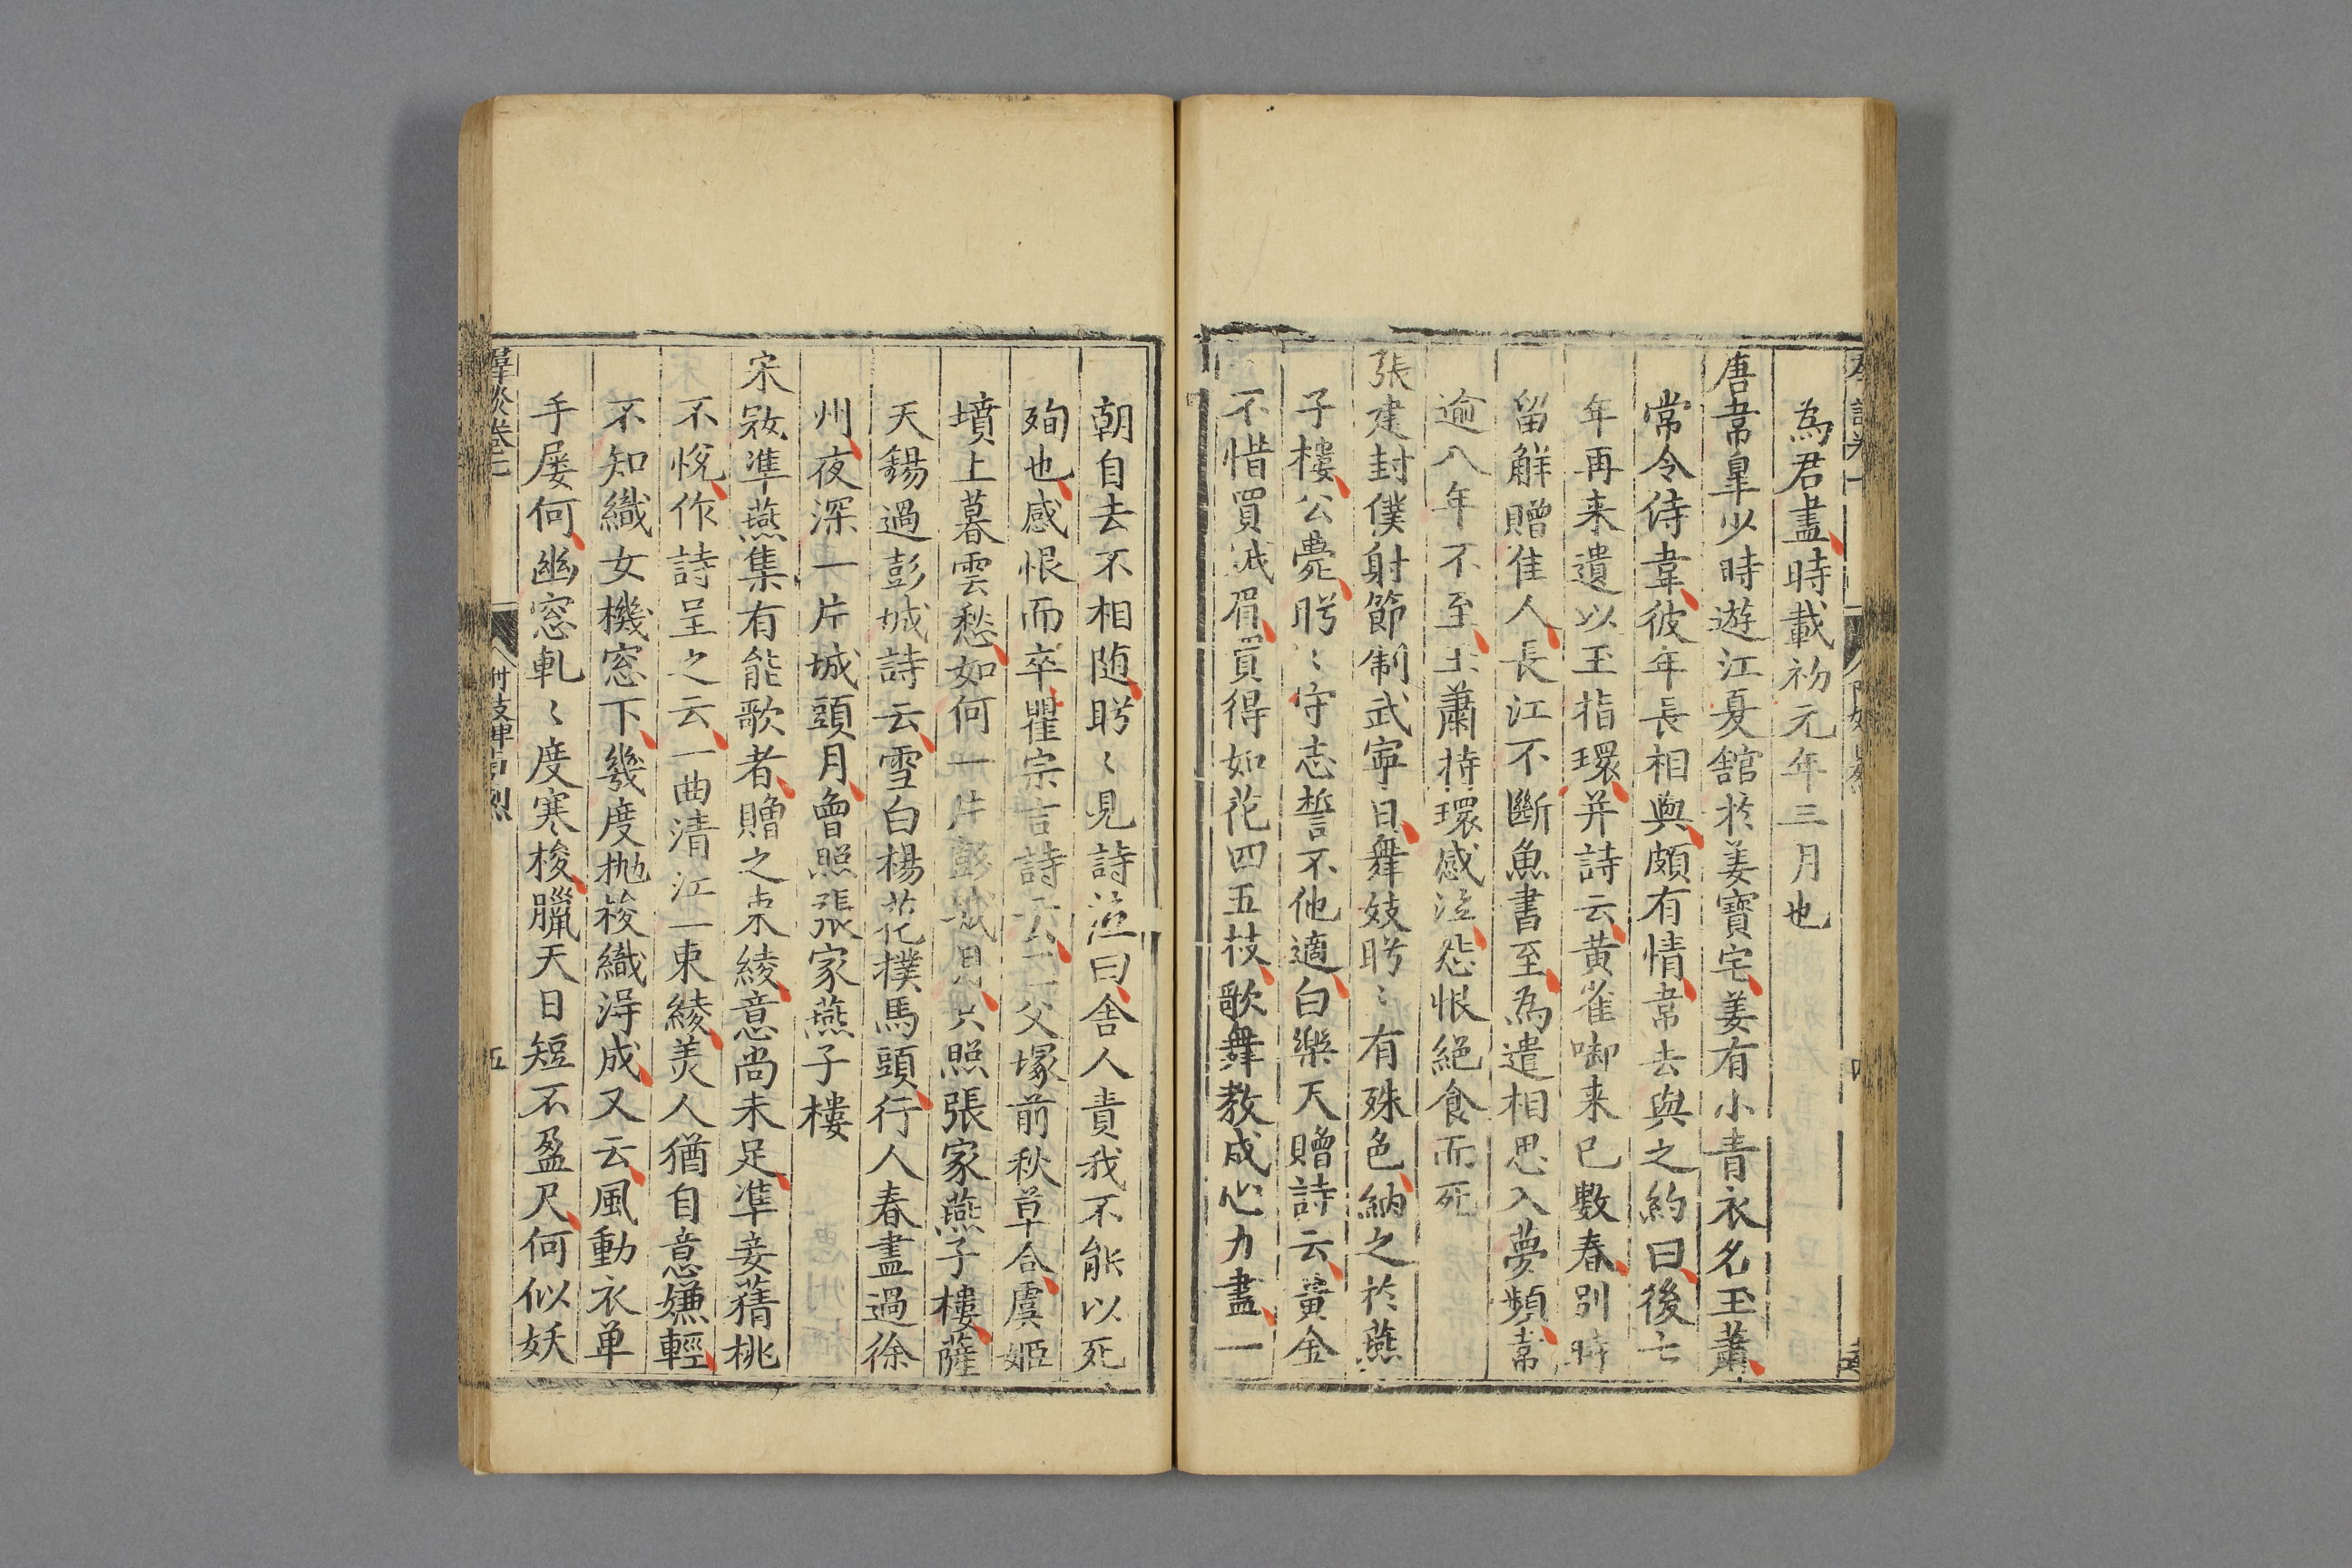 為君盡時載初元年三月也
唐韋臯少時遊江夏舘於姜寶宅姜有小青衣名玉蕭
常令侍韋彼年長相與頗有情韋去與之約曰後七
年再来遺以玉指環并詩云黄雀啣来已數春別時
留觧贈佳人長江不斷魚書至為遣相思入夢頻韋
逾八年不至玉蕭持環感泣怨恨絕食而死
張建封僕射節制武寧日舞妓盻〻有殊色納之於燕
子樓公薨盻〻守志誓不他適白樂天贈詩云黄金
不惜買娥眉買得如花四五枝歌舞教成心力盡一
朝自去不相随盻〻見詩泣曰舍人責我不能以死
殉也感恨而卒瞿宗吉詩云亞父塚前秋草合虞姬
墳上暮雲愁如何一片彭城月只照張家燕子樓薩
天錫過彭城詩云雪白楊花撲馬頭行人春盡過徐
州夜深一片城頭月曾照張家燕子樓
宋冦準燕集有能歌者贈之束綾意尚未足準妾蒨桃
不悅作詩呈之云一曲清江一束綾美人猶自意嫌輕
不知織女機窓下幾度抛梭織淂成又云風動衣单
手屡何幽窓軋〻度寒梭臘天日短不盈尺何似妖
羣談卷二
五